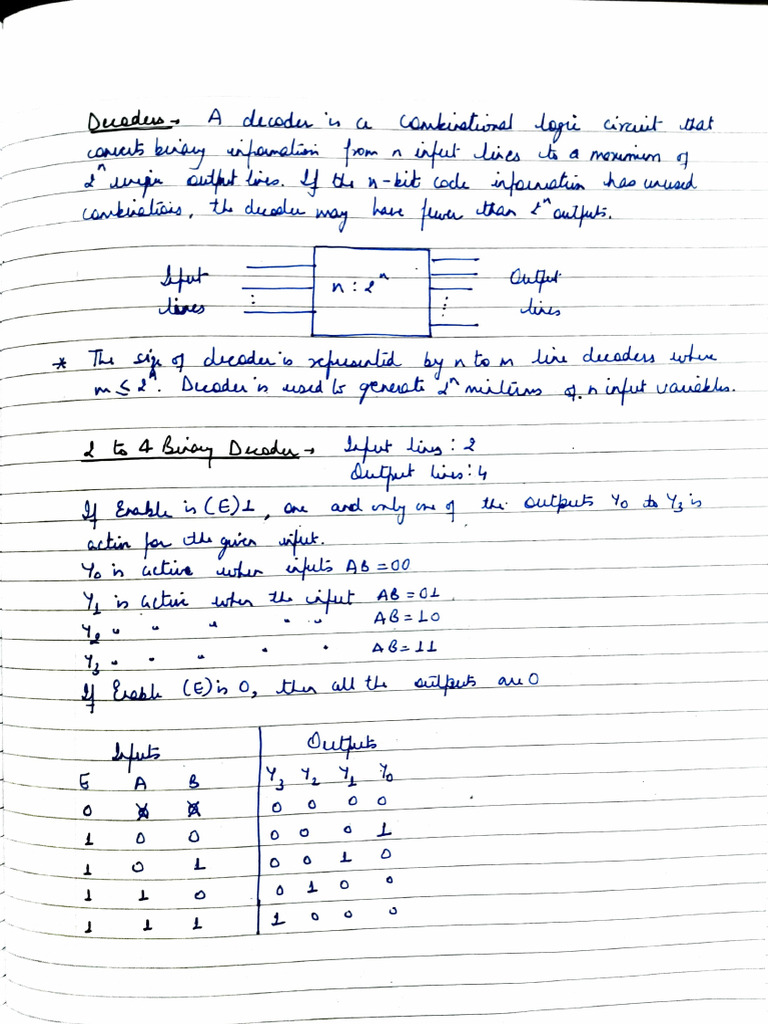 Decoders → A decoder is a combinational logic circuit that
converts binary information from n input lines to a maximum of
2ⁿ unique output lines. If the n-bit code information has unused
combinations, the decoder may have fewer than 2ⁿ outputs.
Input n : 2ⁿ Output
lines lines
* The size of decoder is represented by n to m line decoders where
m ≤ 2ⁿ. Decoder is used to generate 2ⁿ minterms of n input variables.
2 to 4 Binary Decoder → Input lines : 2
Output lines : 4
If Enable is (E) 1, one and only one of the outputs Y0 to Y3 is
active for the given input.
Y0 is active when inputs AB = 00
Y1 is active when the input AB = 01
Y2 " " " " " AB = 10
Y3 " " " " " AB = 11
If Enable (E) is 0, then all the outputs are 0
Inputs Outputs
E A B Y3 Y2 Y1 Y0
0 X X 0 0 0 0
1 0 0 0 0 0 1
1 0 1 0 0 1 0
1 1 0 0 1 0 0
1 1 1 1 0 0 0